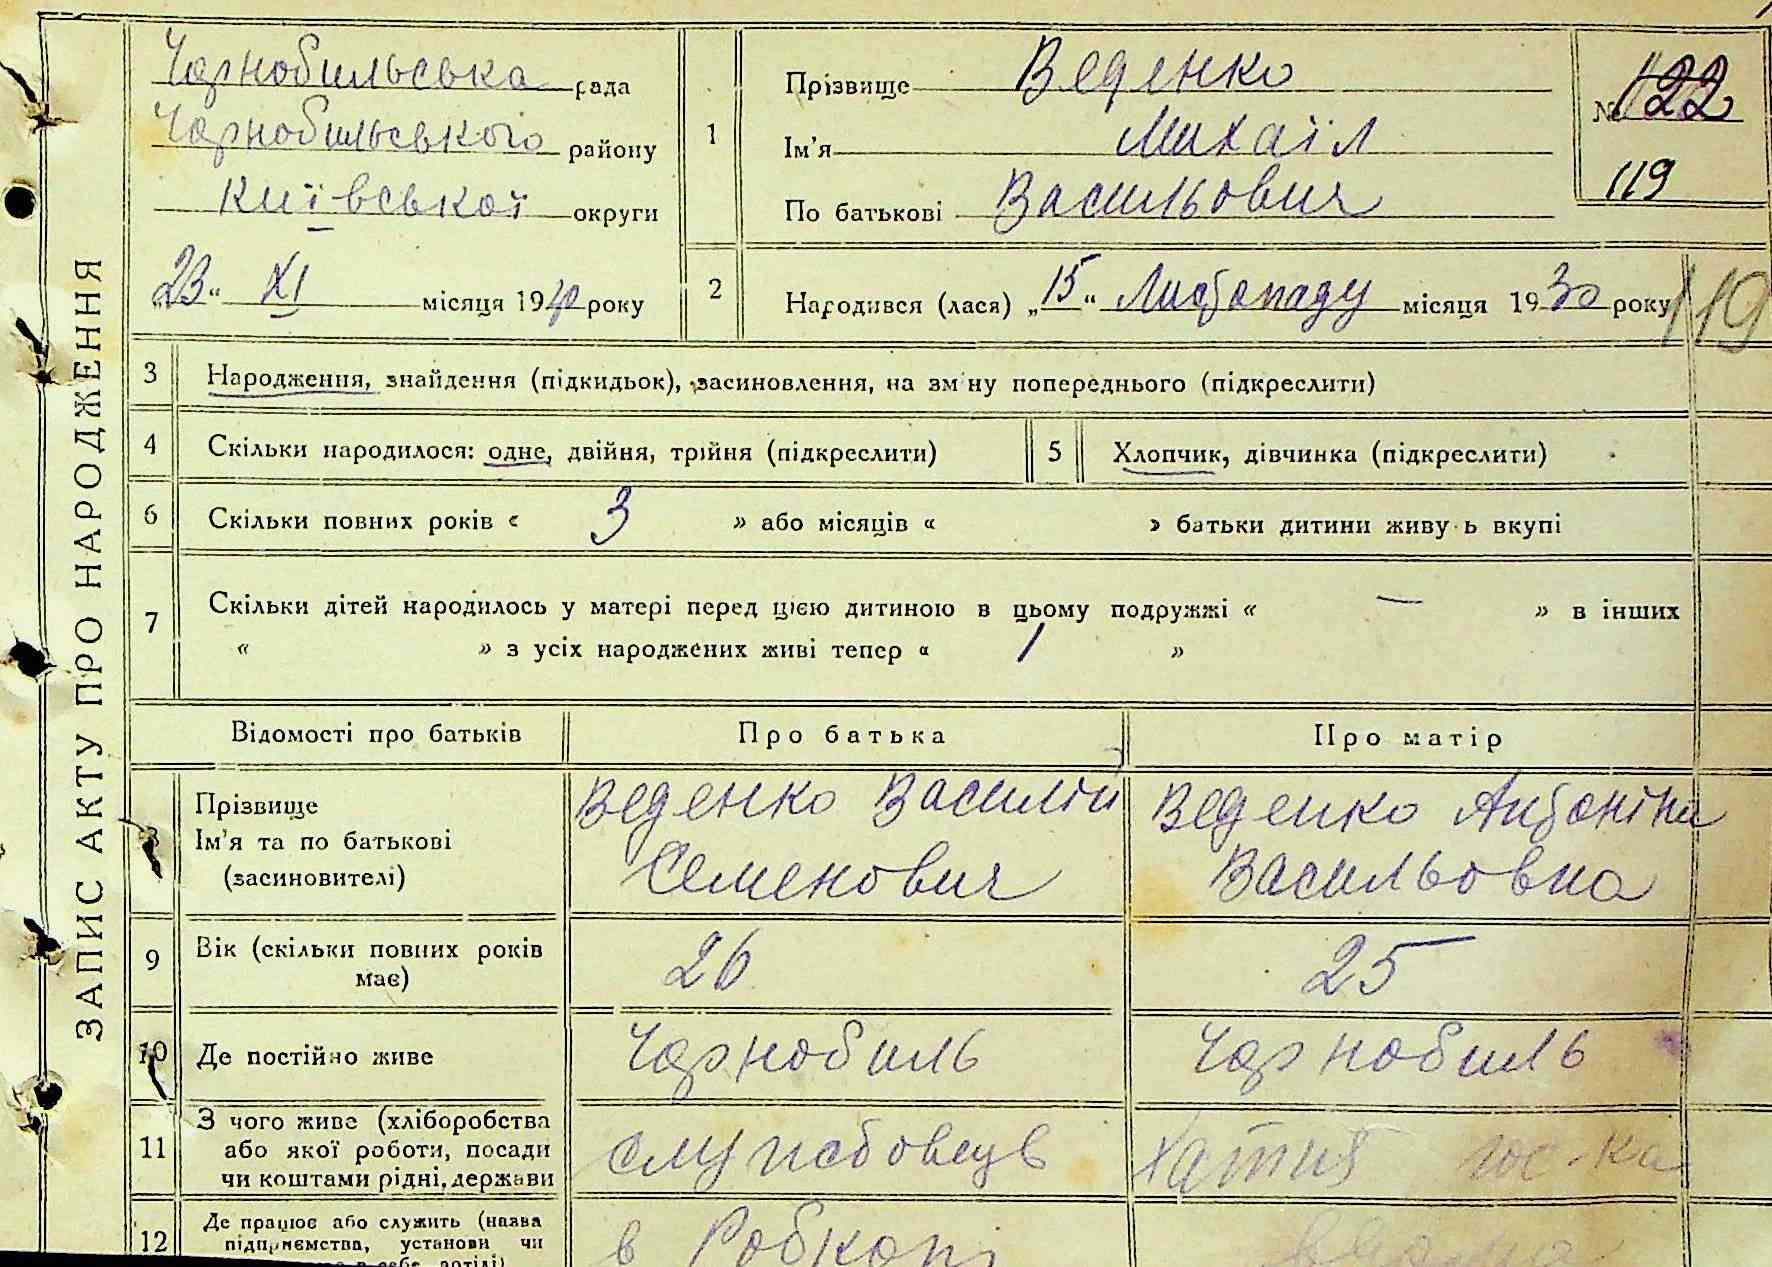 ЗАПИС АКТУ ПРО НАРОДЖЕННЯ
Чорнобильська рада
Чорнобильського району
Київської округи
„23“ XI місяця 1930 року
1
Прізвище Веденко
Ім'я Михаїл
По батькові Васильович
№ 122
119
2
Народився (лася) „15“ Листопаду місяця 1930 року
119
3 Народження, знайдення (підкидьок), засиновлення, на зміну попереднього (підкреслити)
4 Скільки народилося: одне, двійня, трійня (підкреслити)
5 Хлопчик, дівчинка (підкреслити)
6 Скільки повних років « 3 » або місяців « » батьки дитини живуть вкупі
7 Скільки дітей народилось у матері перед цією дитиною в цьому подружжі « — » в інших
« » з усіх народжених живі тепер « 1 »
Відомості про батьків Про батька Про матір
8
Прізвище
Ім'я та по батькові
(засиновителі)
Веденко Василій
Семенович
Веденко Антоніна
Васильовна
9
Вік (скільки повних років
має)
26
25
10 Де постійно живе Чорнобиль Чорнобиль
11
З чого живе (хліборобства
або якої роботи, посади
чи коштами рідні, держави
службовець
Хатня гос-ка
12
Де працює або служить (назва
підприємства, установи чи
в Робкопі